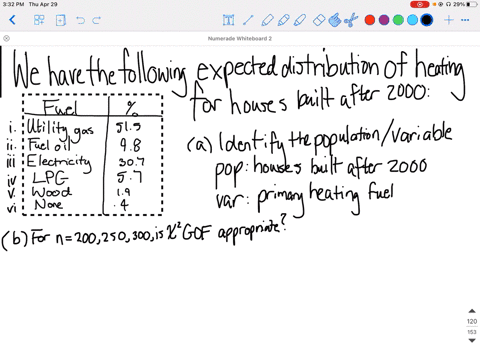 3:32 PM Thu Apr 29
29%
Numerade Whiteboard 2
We have the following expected distribution of heating
for houses built after 2000:
Fuel %
i. Utility gas 51.5
ii. Fuel oil 9.8
iii Electricity 30.7
iv LPG 5.7
v. Wood 1.9
vi None .4
(a) Identify the population/variable
pop: houses built after 2000
var: primary heating fuel
(b) For n=200, 250, 300, is χ² GOF appropriate?
120
153